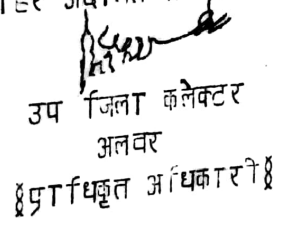 उप जिला कलेक्टर
अलवर
४प्राधिकृत अधिकारी४